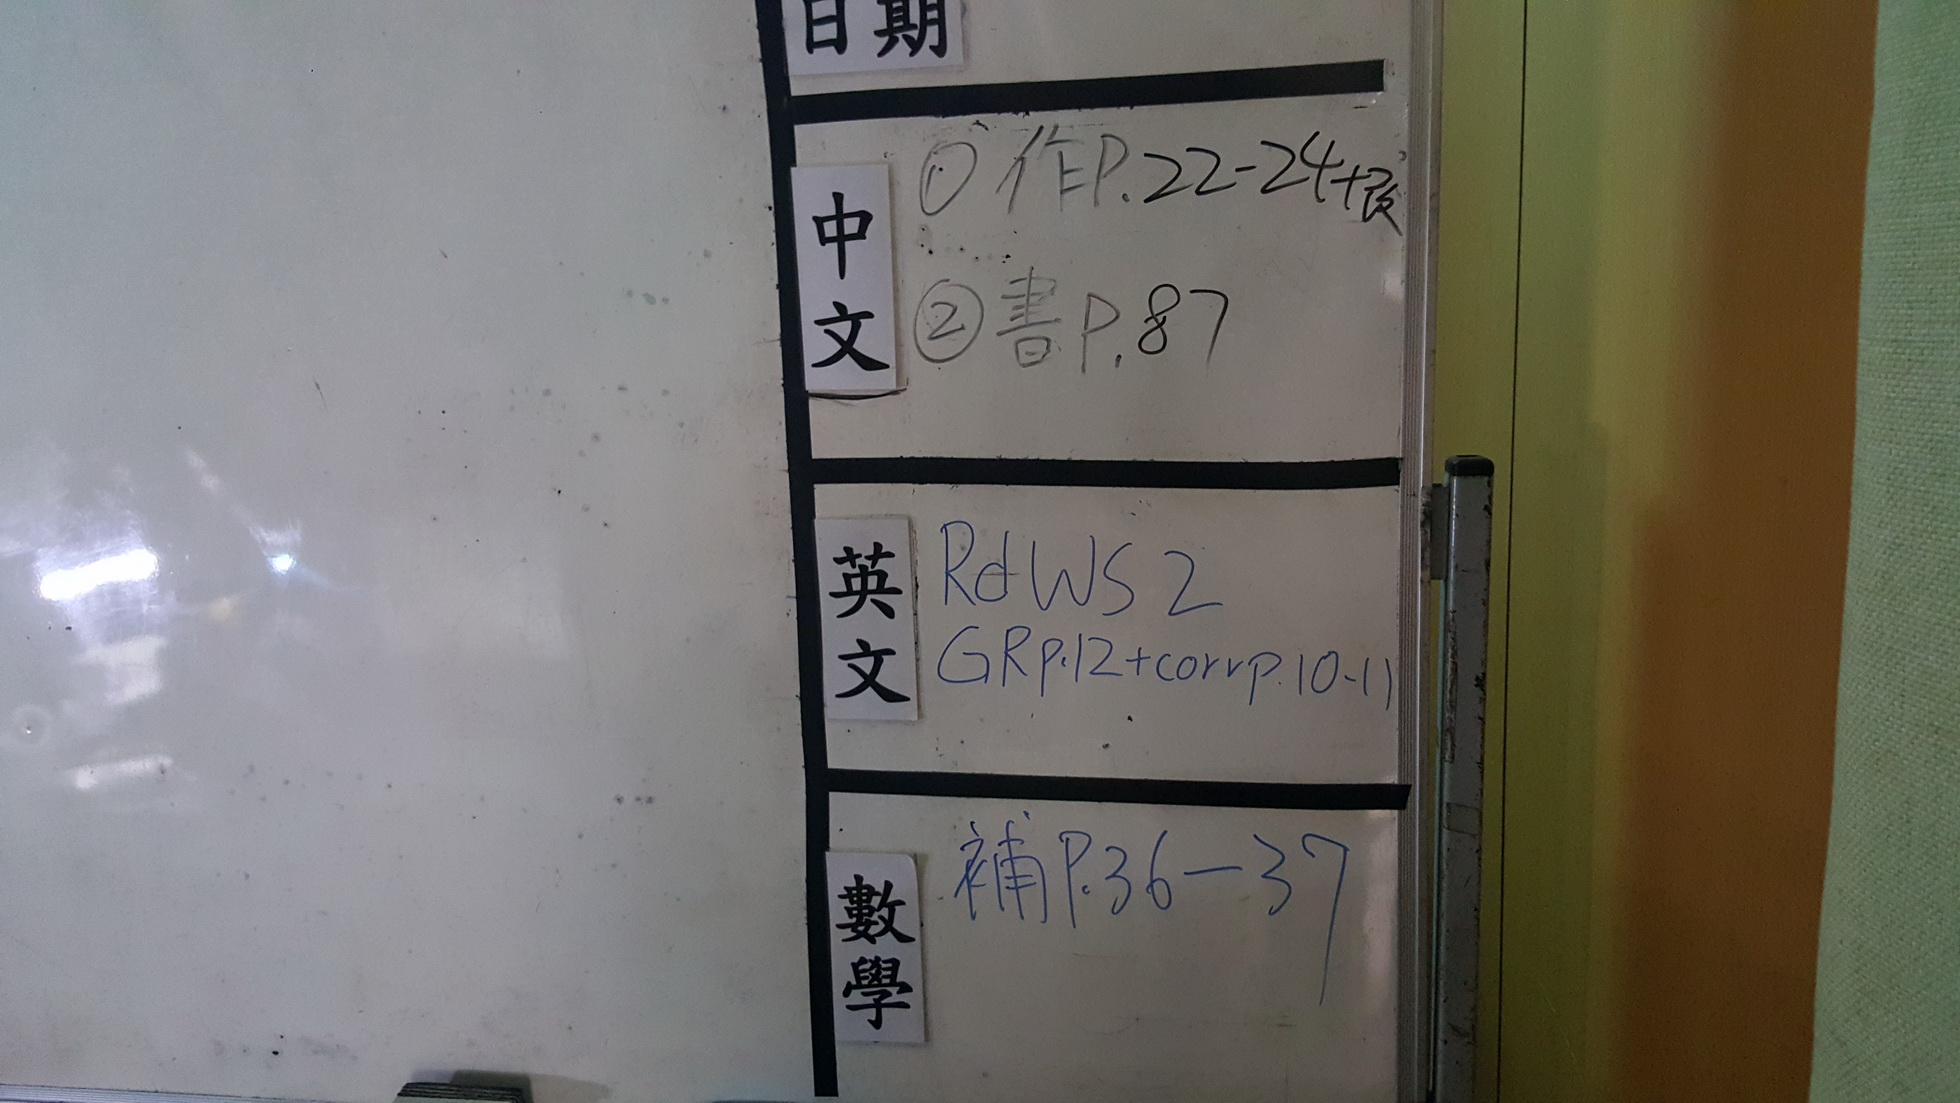 日期
中文
①作P.22-24+改
②書P.87
英文
Rd WS 2
GR p.12+corr p.10-11
數學
補P.36-37